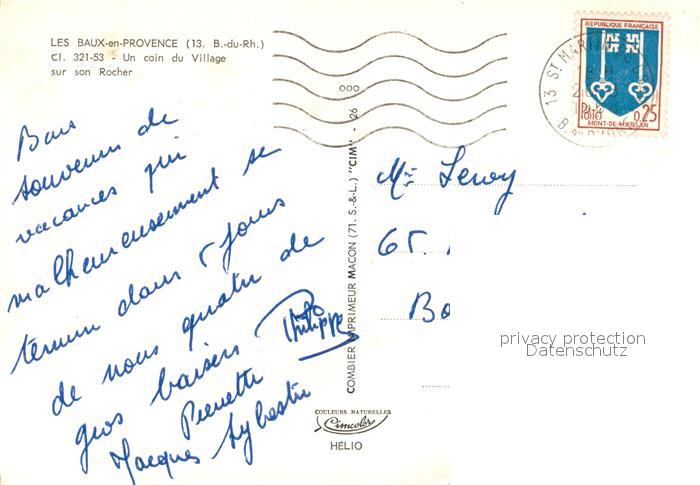 LES BAUX-en-PROVENCE (13. B.-du-Rh.)
Cl. 321-53 - Un coin du Village
sur son Rocher
Bons
souvenirs de
vacances qui
malheureusement se
termine dans 5 jours
de nous quatre de
gros baisers Philippe
Pierrette
Jacques Sylvestre
000
COMBIER IMPRIMEUR MACON (71. S.-&-L.) "CIM" - 26
COULEURS NATURELLES
Cimcolor
HÉLIO
REPUBLIQUE FRANÇAISE
POSTES 0,25
MONT-DE-MARSAN
13 ST MARTIN
Mme Leroy
65
Bo
privacy protection
Datenschutz